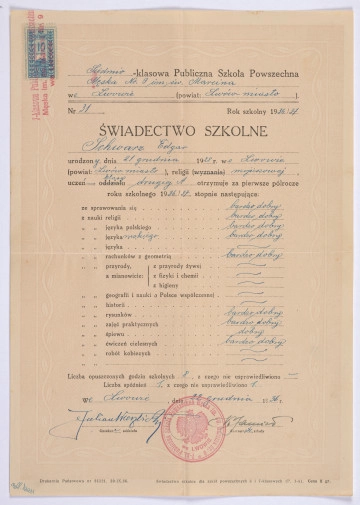 -klasowa Publiczna Szkoła Powszechna
Męska Nr. 9 im. św. Marcina
we Lwowie (powiat: Lwów miasto ).
Nr. 21 Rok szkolny 1936/37.
ŚWIADECTWO SZKOLNE
Schwarz Edgar
urodzony dnia 21 grudnia 19 we Lwowie
(powiat: Lwów miasto ), religii (wyznania) mojżeszowej,
uczeń oddziału drugiej A otrzymuje za pierwsze półrocze
roku szkolnego 1936/37 stopnie następujące:
ze sprawowania się bardzo dobry
z nauki religii bardzo dobry
„ „ języka polskiego bardzo dobry
„ „ języka
„ „ języka
„ „ rachunków z geometrią bardzo dobry
„ „ przyrody, z przyrody żywej
a mianowicie: z fizyki i chemii
z higieny
„ „ geografii i nauki o Polsce współczesnej
„ „ historii
„ „ rysunków bardzo dobry
„ „ zajęć praktycznych bardzo dobry
„ „ śpiewu dobry
„ „ ćwiczeń cielesnych bardzo dobry
„ „ robót kobiecych
Liczba opuszczonych godzin szkolnych 8, z czego nie usprawiedliwiono —
Liczba spóźnień 1, z czego nie usprawiedliwiono 1.
We Lwowie, dnia 22 grudnia 1936